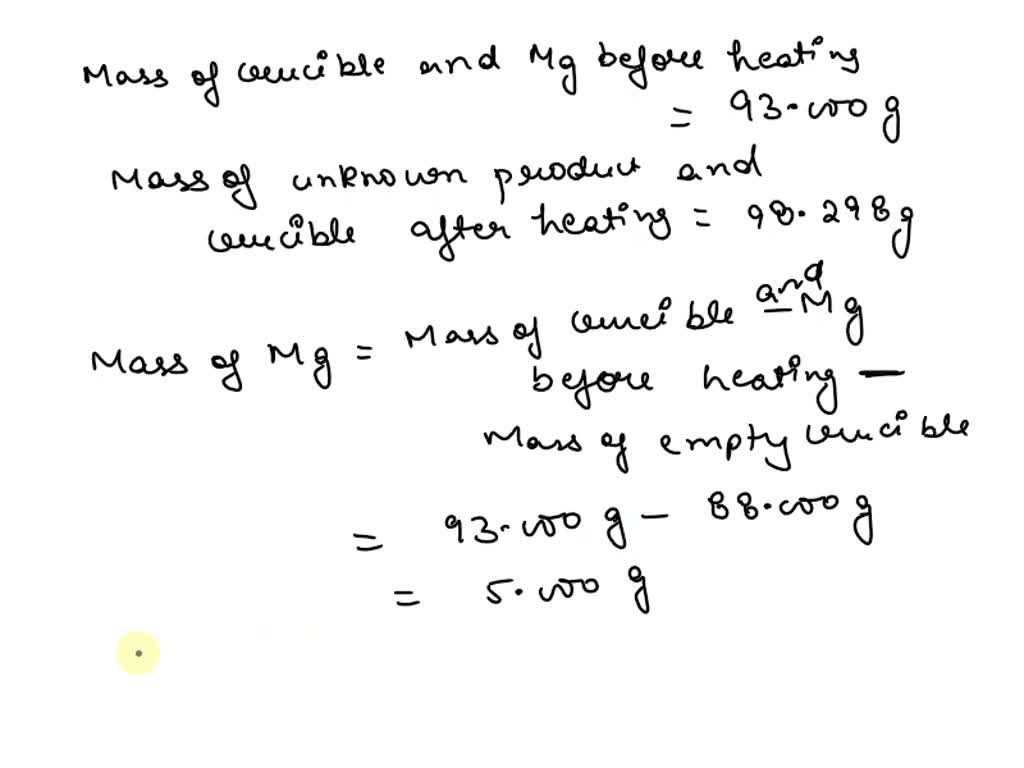 Mass of crucible and Mg before heating
= 93.000 g
Mass of unknown product and
crucible after heating = 98.298g
Mass of Mg = Mass of crucible and Mg
before heating —
Mass of empty crucible
= 93.000 g - 88.000 g
= 5.000 g